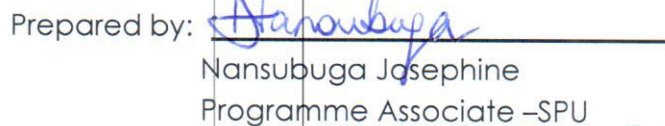 Prepared by: Nansubuga
Nansubuga Josephine
Programme Associate –SPU